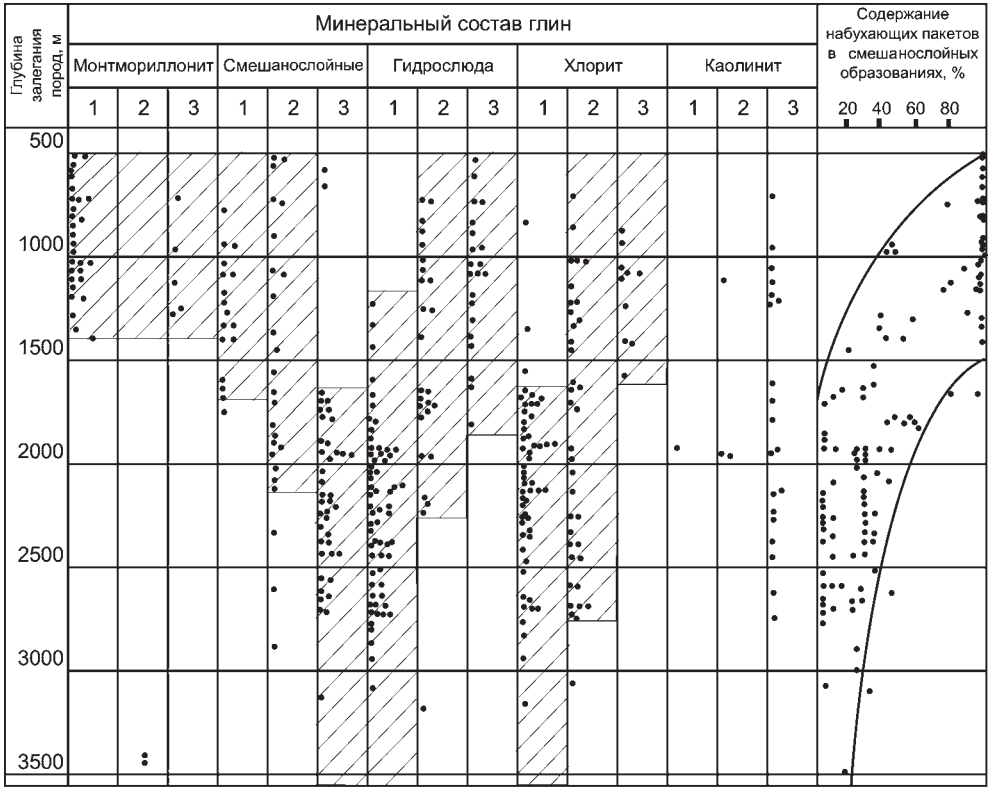 Глубина
залегания
пород, м
Минеральный состав глин
Содержание
набухающих пакетов
в смешанослойных
образованиях, %
Монтмориллонит Смешанослойные Гидрослюда Хлорит Каолинит
1 2 3 1 2 3 1 2 3 1 2 3 1 2 3
20 40 60 80
500
1000
1500
2000
2500
3000
3500